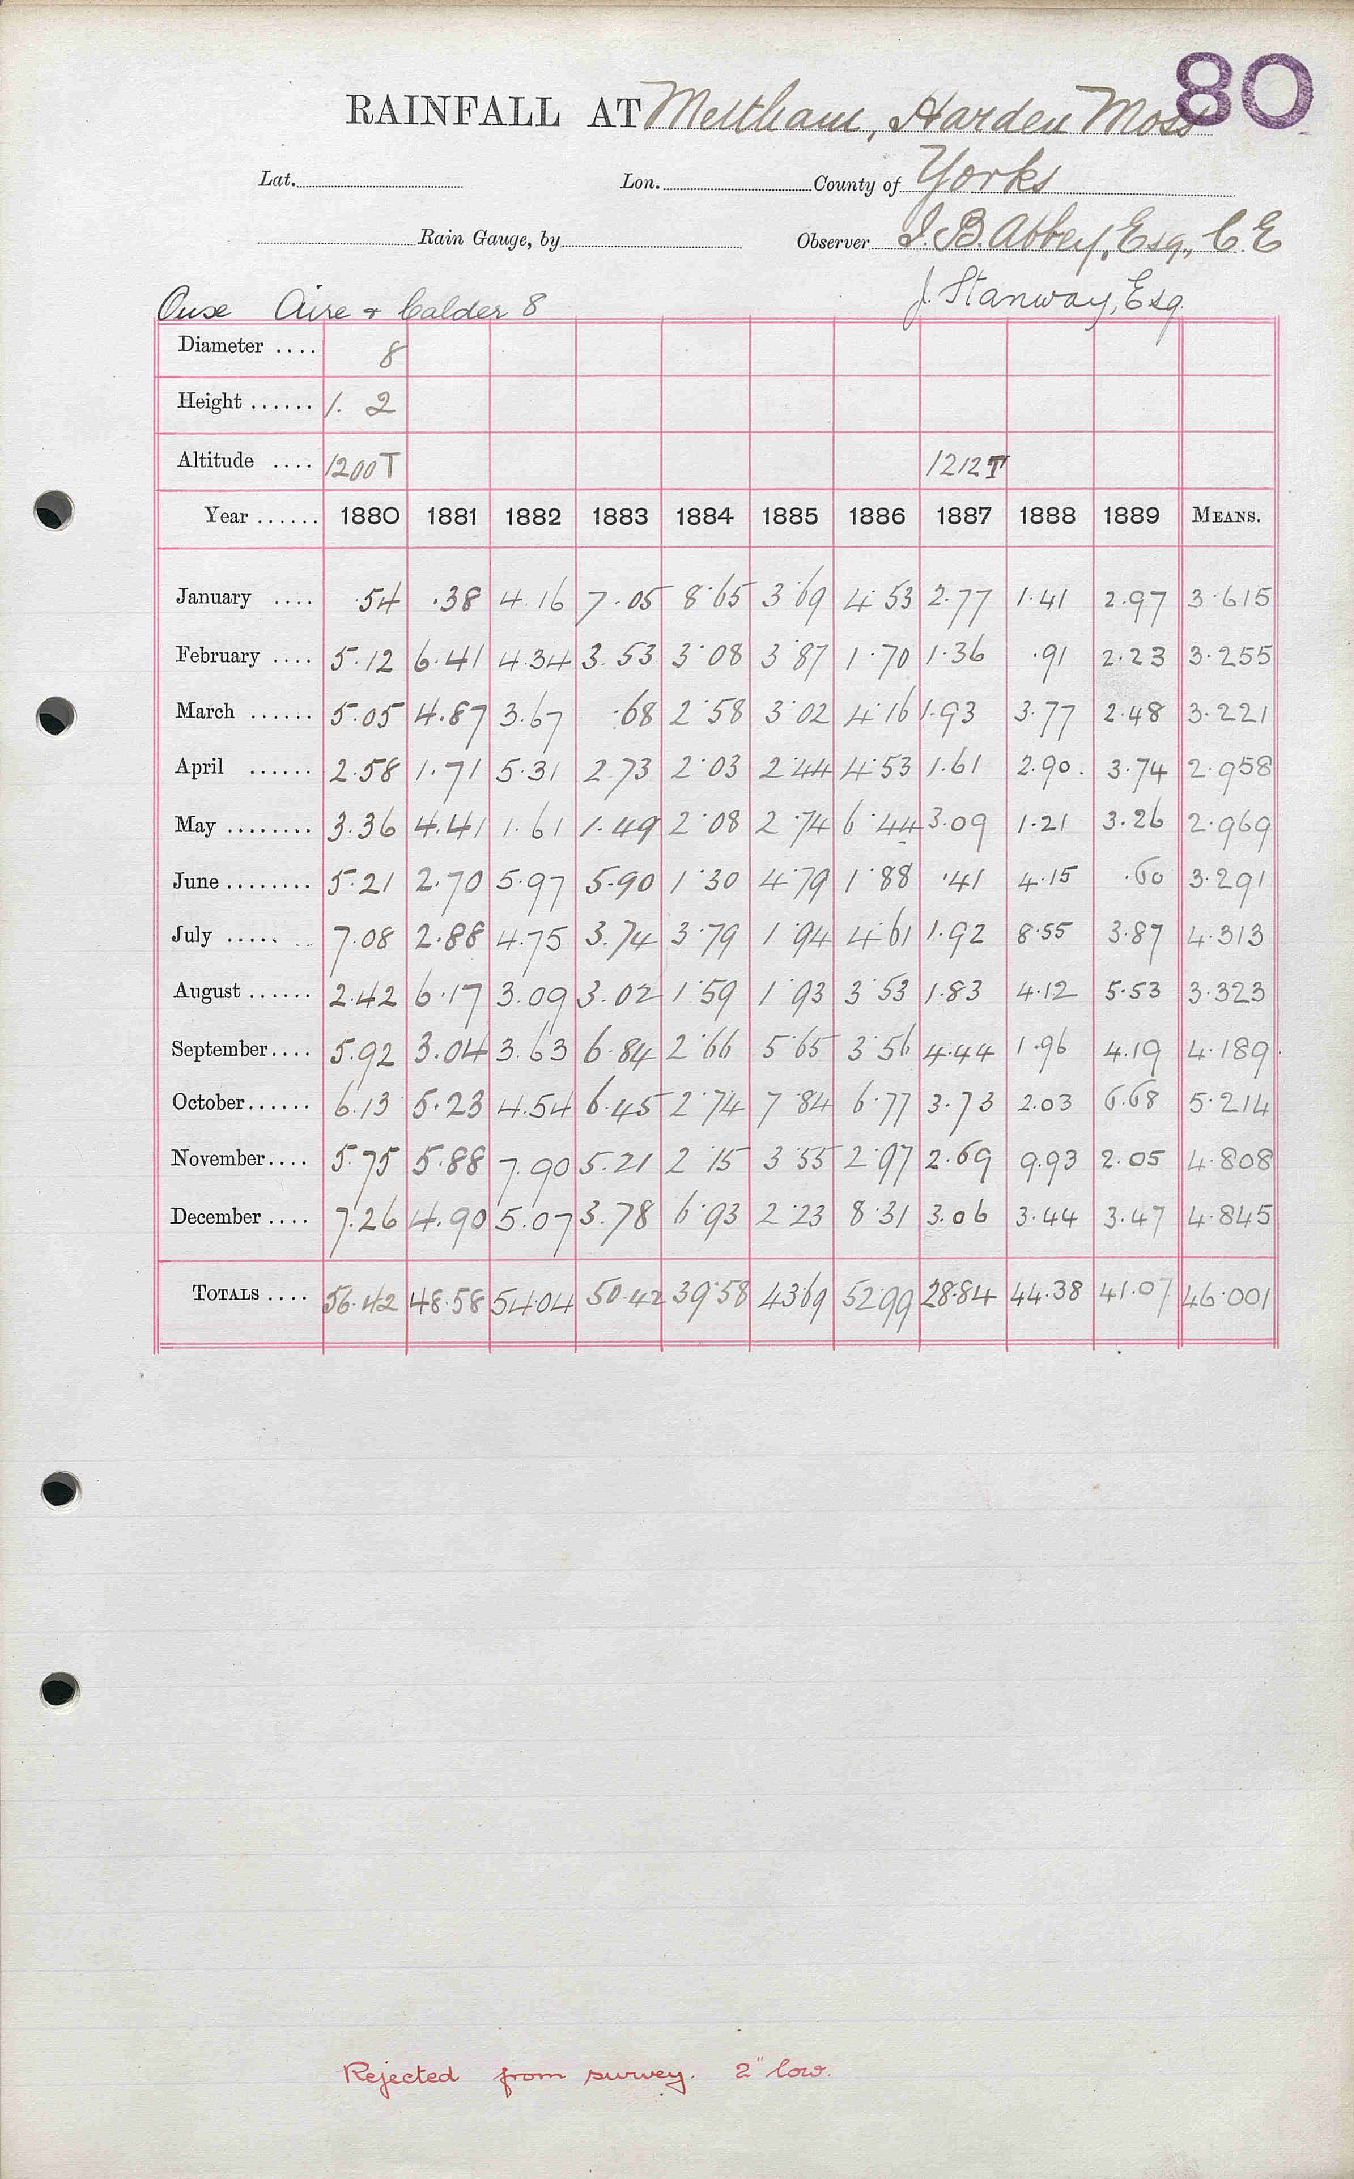 80
RAINFALL AT Meltham, Harden Moss
Lat. Lon. County of Yorks
Rain Gauge, by Observer J. B. Abbey, Esq., C.E
J. Stanway, Esq.
Ouse Aire & Calder 8
Diameter .... 8
Height ...... 1. 2
Altitude .... 1200T 1212T
Year ...... 1880 1881 1882 1883 1884 1885 1886 1887 1888 1889 MEANS.
January .... .54 .38 4.16 7.05 8.65 3.69 4.53 2.77 1.41 2.97 3.615
February .... 5.12 6.41 4.34 3.53 3.08 3.87 1.70 1.36 .91 2.23 3.255
March ...... 5.05 4.87 3.67 .68 2.58 3.02 4.16 1.93 3.77 2.48 3.221
April ...... 2.58 1.71 5.31 2.73 2.03 2.44 4.53 1.61 2.90. 3.74 2.958
May ........ 3.36 4.41 1.61 1.49 2.08 2.74 6.44 3.09 1.21 3.26 2.969
June ........ 5.21 2.70 5.97 5.90 1.30 4.79 1.88 .41 4.15 .60 3.291
July ..... 7.08 2.88 4.75 3.74 3.79 1.94 4.61 1.92 8.55 3.87 4.313
August ...... 2.42 6.17 3.09 3.02 1.59 1.93 3.53 1.83 4.12 5.53 3.323
September .... 5.92 3.04 3.63 6.84 2.66 5.65 3.56 4.44 1.96 4.19 4.189
October ...... 6.13 5.23 4.54 6.45 2.74 7.84 6.77 3.73 2.03 6.68 5.214
November .... 5.75 5.88 7.90 5.21 2.15 3.55 2.97 2.69 9.93 2.05 4.808
December .... 7.26 4.90 5.07 3.78 6.93 2.23 8.31 3.06 3.44 3.47 4.845
TOTALS .... 56.42 48.58 54.04 50.42 39.58 43.69 52.99 28.84 44.38 41.07 46.001
Rejected from survey. 2" low.